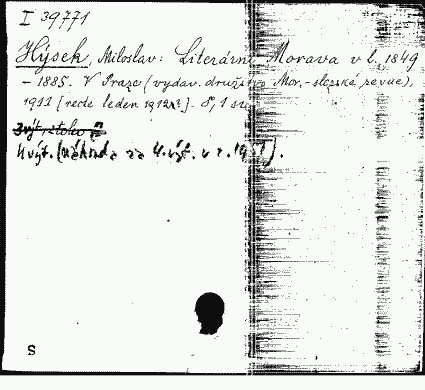 I 39771
Hýsek, Miloslav: Literární Morava v l. 1849
– 1885. V Praze (vydav. družstvo Mor.-slezské revue),
1911 [recte leden 1912]. 8, 1 s
4 výt. [náhrada za 4. výt. v r. 1951].
S